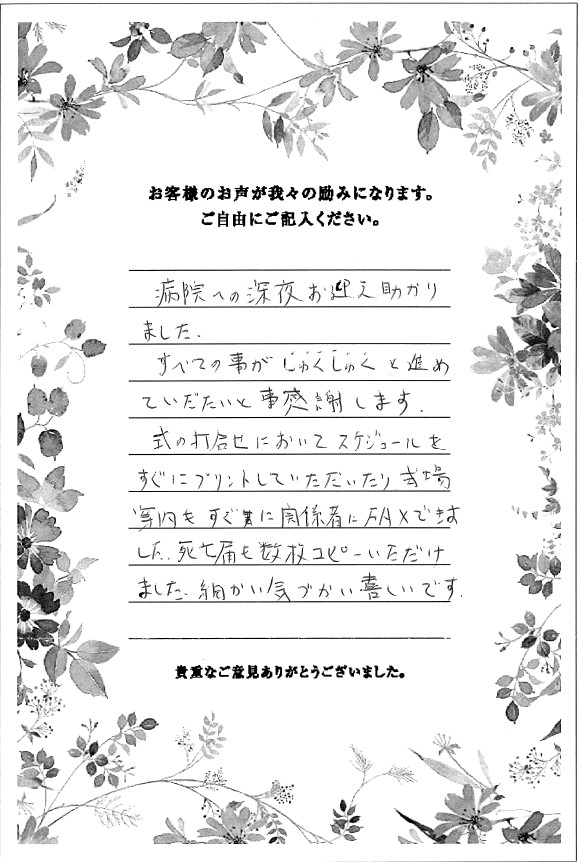 お客様のお声が我々の励みになります。
ご自由にご記入ください。
病院への深夜お迎え助かり
ました。
すべての事がじゅくじゅくと進め
ていだたいた事感謝します。
式の打合せにおいてスケジュールを
すぐにプリントしていただいたり、式場
案内もすぐに関係者にFAXできま
した。死亡届も数枚コピーいただけ
ました。細かい気づかい喜しいです。
貴重なご意見ありがとうございました。